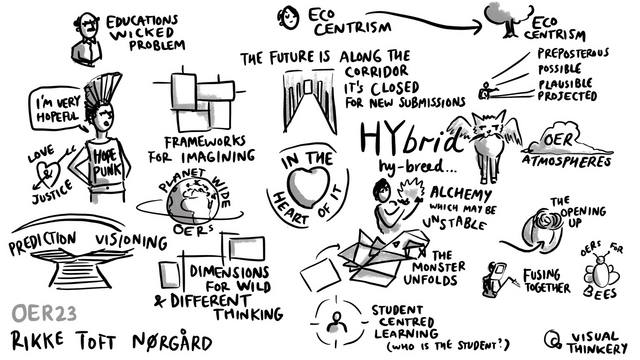 EDUCATIONS
WICKED
PROBLEM
ECO
CENTRISM
ECO
CENTRISM
THE FUTURE IS ALONG THE
CORRIDOR
IT'S CLOSED
FOR NEW SUBMISSIONS
PREPOSTEROUS
POSSIBLE
PLAUSIBLE
PROJECTED
I'M VERY
HOPEFUL
HOPE
PUNK
LOVE
&
JUSTICE
FRAMEWORKS
FOR IMAGINING
IN THE
HEART OF IT
HYbrid
hy-breed...
OER
ATMOSPHERES
PLANET WIDE
OERs
ALCHEMY
WHICH MAY BE
UNSTABLE
THE
OPENING
UP
PREDICTION VISIONING
DIMENSIONS
FOR WILD
& DIFFERENT
THINKING
THE
MONSTER
UNFOLDS
FUSING
TOGETHER
OERS FOR
BEES
STUDENT
CENTRED
LEARNING
(WHO IS THE STUDENT?)
OER23
RIKKE TOFT NØRGÅRD
VISUAL
THINKERY